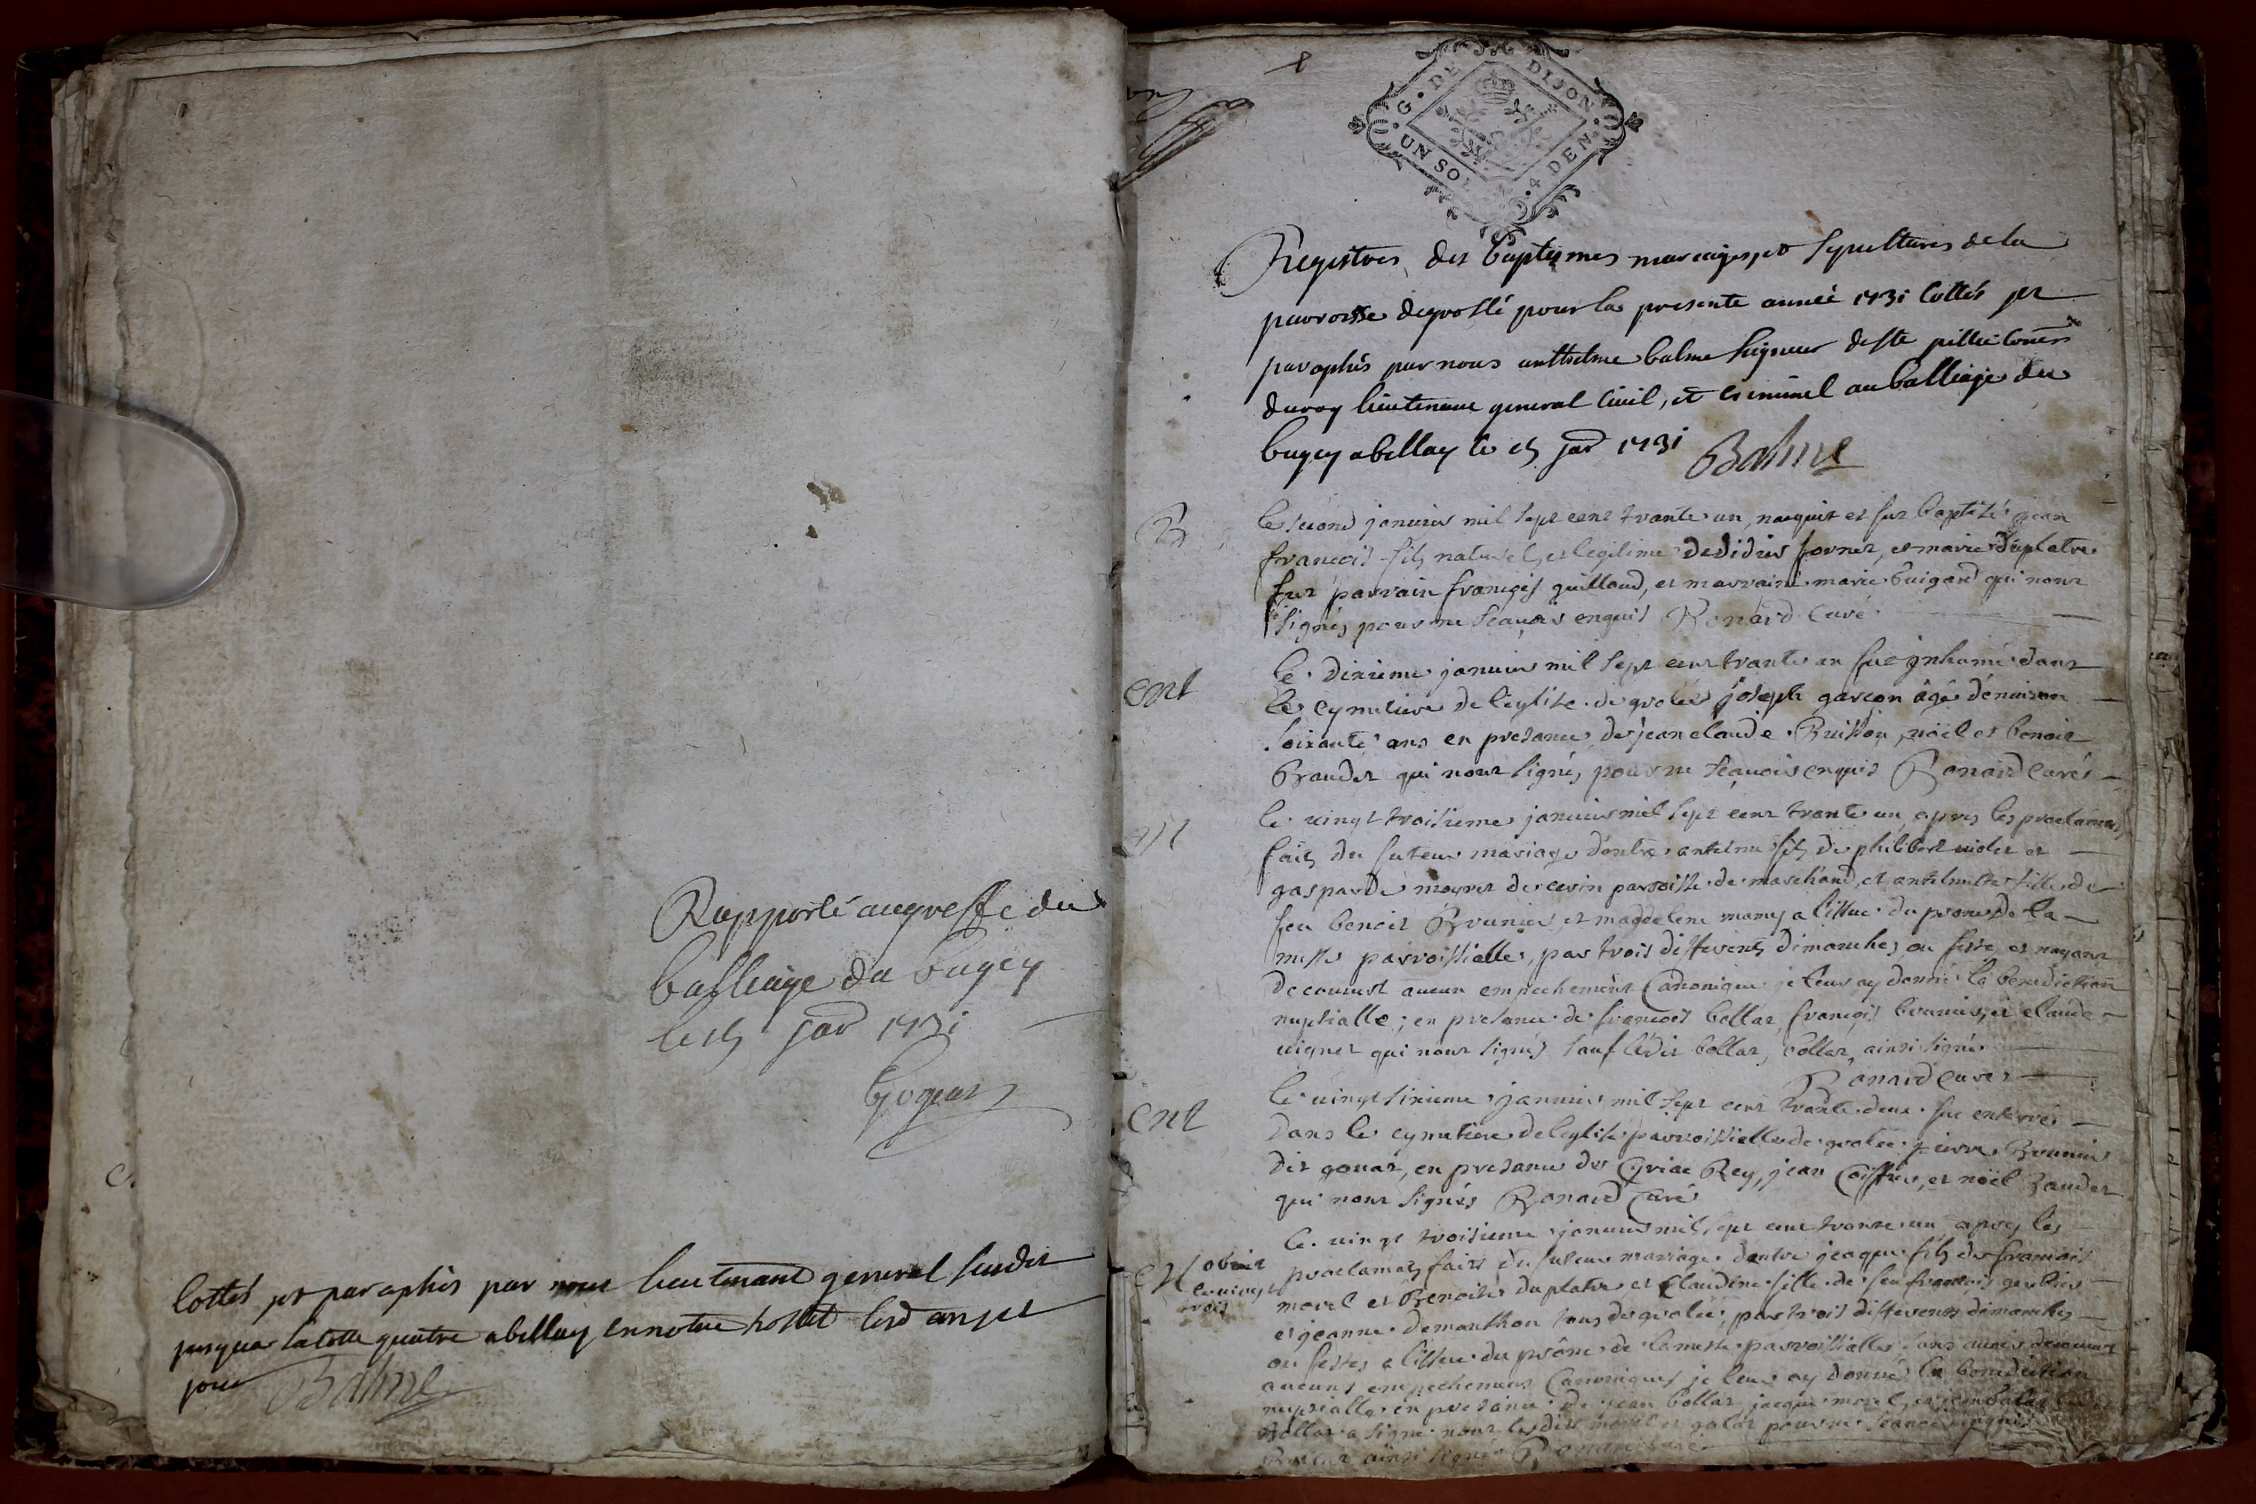 Rapporté au greffe du
balliage du bugey
le 15 jar 1731
Cottés et paraphés par nous lieutenant general susdit
jusques la cotte quatre a bellay en notre hostel lesd an et
jour Balme
G. DE DIJON
UN SOL 4 DEN.
Registres des baptesmes mariages et sepultures de la
parroisse de groslé pour la presente année 1731 Cottés et
paraphés par nous anthelme balme seigneur de ste
du roy lieutenant general Civil, et Criminel au balliage du
bugey a bellay le 15 jar 1731 Balme
le second janvier mil sept cent trante un, naquit et fut baptisé jean
françois fils naturel, et legitime de didier fornet, et marie duplatre
fut parrain françois guilloud, et marraine marie guigard qui n'ont
signés pour ne sçavoir enquis Bonard Curé
ent
le dixieme janvier mil sept cent trante un fut jnhumé dans
le cymetiere de l'eglise de grolée joseph garçon âgé d'environ
soixante ans en presance de jean claude Buisson, noël et benoit
Braudet qui n'ont signés pour ne sçavoir enquis Bonard Curé
le vingt troisieme janvier mil sept cent trante un, apres les proclamats
faits du futeur mariage d'entre antelme fils de philibert violet et
gasparde meyret de cerin parroisse de marchand, et antelmette fille de
feu benoit Brunier, et magdelene mamy a l'issue du prone de la
messe parroissialle, par trois differents dimanches, ou feste, et n'ayant
decouvert aucun empechement Canonique je leur ay donné la benediction
nuptialle; en presance de françois bollar, françois brunier, et claude
vignet qui n'ont signés sauf ledit bollar, bollar, ainsi signé
Bonard Curé
ent
le vingt sixieme janvier mil sept cent trante deux fut enterré
dans le cymetiere de l'eglise parroissielle de grolée pierre Brunier
dit gonat, en presance de Cyriac Rey, jean Coiffier, et noël Baudet
qui n'ont signés Bonard Curé
le vingt troisieme janvier mil sept cent trante un apres les
proclamats faits du futeur mariage d'entre jacque fils de françois
morel et Benoite duplatre et Claudine fille de feu françois
et jeanne demonthon tous de grolée, par trois differents dimanches
ou festes a l'issue du prône de la messe parroissialle sans avoir decouvert
aucuns empechements Canoniques je leur ay donné la benediction
nuptialle en presance de jean bollar, jacque morel, et
bollar a signé non lesdits morel et pour ne sçavoir enquis
ainsi signé Bonard Curé